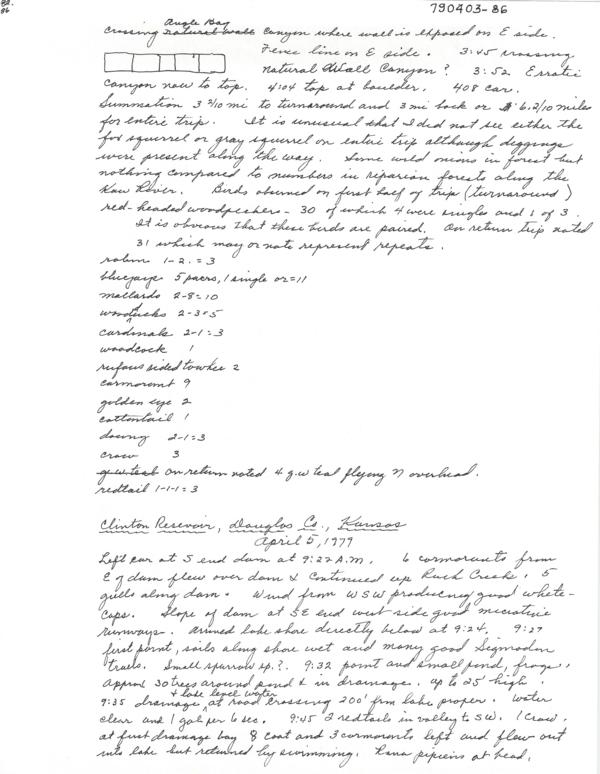 790403-86
86
Angle Bay
Crossing natural wall Canyon where wall is exposed on E side.
Fence line on E side. 3:45 crossing
Natural Wall Canyon? 3:52 Erratic
Canyon now to top. 4:04 top at boulder. 408 car.
Summation 3 2/10 mi to turnaround and 3 mi back or 6.2/10 miles
for entire trip. It is unusual that I did not see either the
fox squirrel or gray squirrel on entire trip although diggings
were present along the way. Some wild onions in forest but
nothing compared to numbers in riparian forests along the
Kaw River. Birds observed on first half of trip (turnaround)
red-headed woodpeckers - 30 of which 4 were singles and 1 of 3.
It is obvious that these birds are paired. On return trip noted
31 which may or note represent repeats.
robin 1-2. = 3
bluejays 5 pairs, 1 single or = 11
mallards 2-8 = 10
woodducks 2-3=5
cardinals 2-1 = 3
woodcock 1
rufous sided towhee 2
cormorant 9
golden eye 2
cottontail 1
downy 2-1=3
crow 3
g.w. teal on return noted 4 g.w teal flying N overhead.
redtail 1-1-1 = 3
Clinton Resevoir, Douglas Co., Kansas
April 5, 1979
Left car at S end dam at 9:22 A.M. 6 cormorants from
E of dam flew over dam & continued up Rock Creek. 5
gulls along dam. Wind from WSW producing good white-
caps. Slope of dam at SE end west side good microtine
runways. Arrived lake shore directly below at 9:24. 9:27
first point, soils along shore wet and many good Sigmodon
trails. Small sparrow sp.?. 9:32 point and small pond, frogs.
Approx 30 trees around pond & in drainage. up to 25' high.
& lake level water
9:35 drainage at road crossing 200' frm lake proper. Water
clear and 1 gal per 6 sec. 9:45 2 redtails in valley to SW. 1 crow.
at first drainage bay 8 coot and 3 cormorants left and flew out
into lake but returned by swimming. Rana pipiens at head,